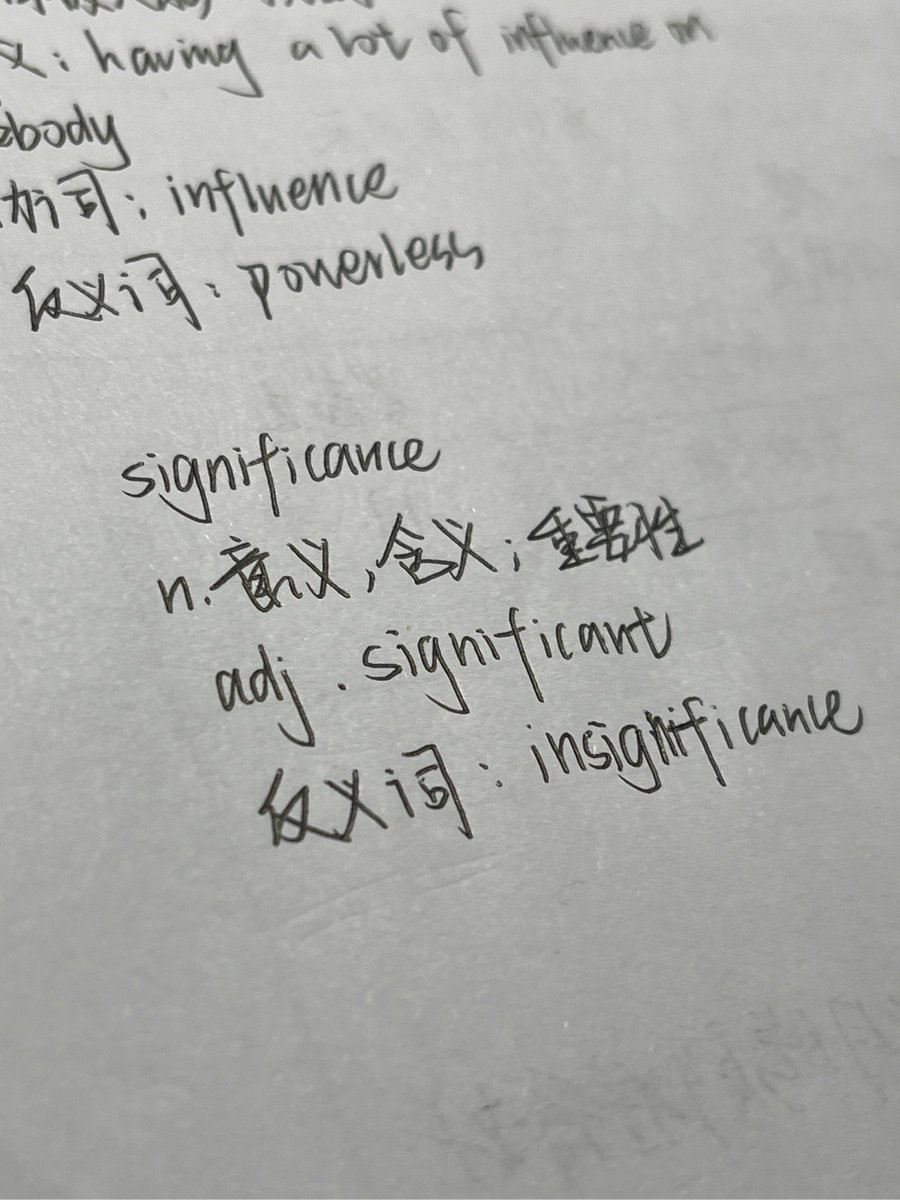 义：having a lot of influence on
body
动词：influence
反义词：powerless
significance
n.意义，含义；重要性
adj. significant
反义词：insignificance